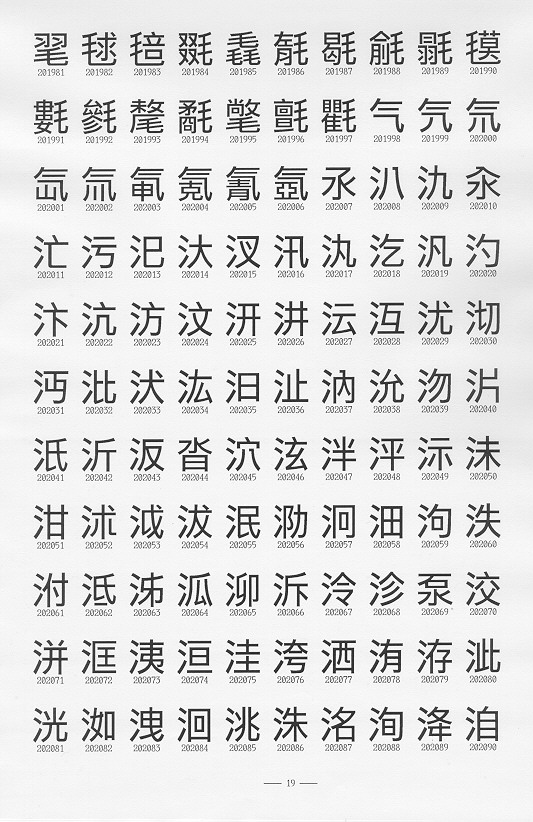 毣 毬 毰 毲 毳 毼 毹 毾 氁
201981 201982 201983 201984 201985 201986 201987 201988 201989 201990
氀 毿 氂 氄 氅 氈 氍 气 氕
201991 201992 201993 201994 201995 201996 201997 201998 201999 202000
氙 氚 氪 氰 氶 汃 氿 汆
202001 202002 202003 202004 202005 202006 202007 202008 202009 202010
汒 污 汜 汏 汊 汛 汍 汔 汎 汋
202011 202012 202013 202014 202015 202016 202017 202018 202019 202020
汴 沆 汸 汶 汧 汫 沄 沍 沋 沏
202021 202022 202023 202024 202025 202026 202027 202028 202029 202030
沔 沘 汱 汯 汩 沚 汭 沇 沕
202031 202032 202033 202034 202035 202036 202037 202038 202039 202040
汦 沂 汳 沓 泬 泫 泮 泙 沶 沬
202041 202042 202043 202044 202045 202046 202047 202048 202049 202050
泔 沭 泧 沷 泯 泐 泂 沺 泃 泆
202051 202052 202053 202054 202055 202056 202057 202058 202059 202060
泭 泜 泲 泒 泖 泝 泠 沴 泵 洨
202061 202062 202063 202064 202065 202066 202067 202068 202069 202070
洴 洭 洟 洹 洼 洿 洒 洧 洊 泚
202071 202072 202073 202074 202075 202076 202077 202078 202079 202080
洸 洳 洩 洄 洮 洙 洺 洵 洚 洎
202081 202082 202083 202084 202085 202086 202087 202088 202089 202090
— 19 —